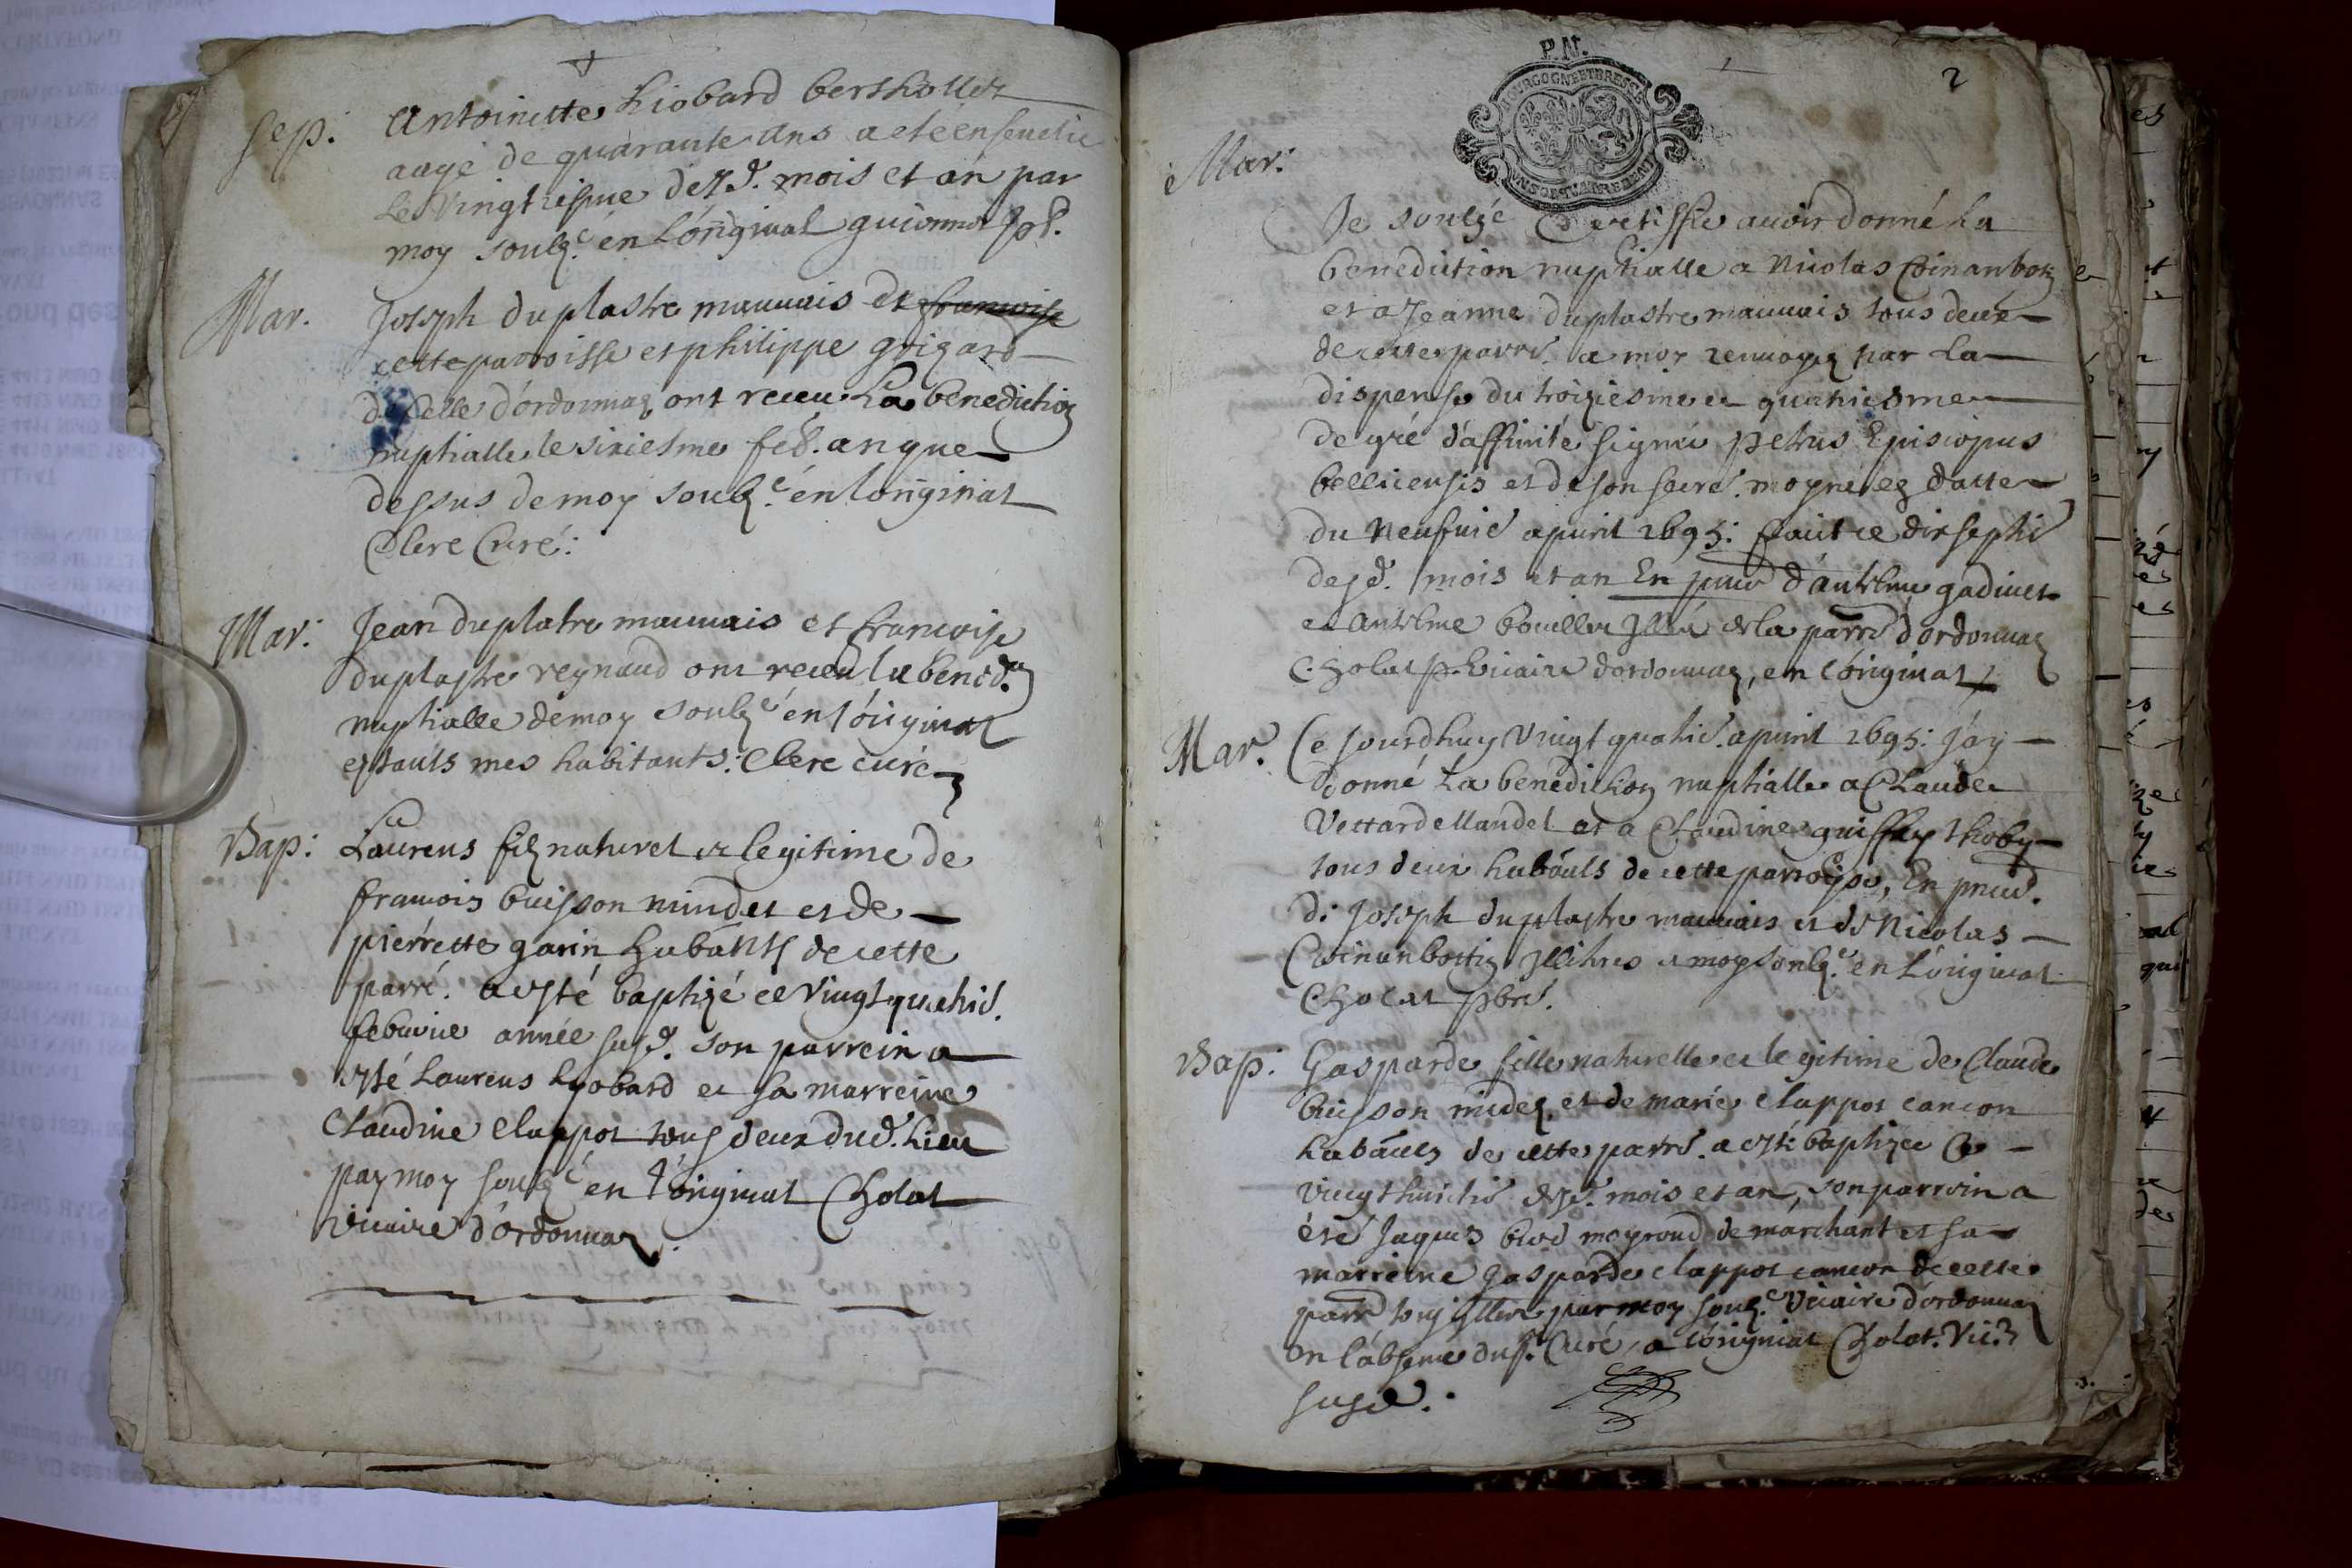 Sep:
Antoinette Liobard berthollet
aagé de quarante ans a eté ensevelie
Le Vingtiesme desd. mois et an par
moy soubz.é en L'original guionnet
Mar.
Joseph duplastre mauuais de francoise
cette parroisse et philippe grigard
de Celle d'ordonnaz ont receu La benediction
nuptialle le sixiesme feb. an que
dessus de moy soubz.é en loriginal
Clere Curé:
Mar:
Jean duplatre mauuais et francoise
duplastre reynaud ont receu la bened.on
nuptialle de moy soubz.é en l'original
estants mes habitants: Clere curé
Bap:
Laurens filz naturel et legitime de
francois buisson mindet et de
pierrette garin habants de cette
parré. a esté baptizé ce Vingt quatrié.
febvrie année susd. son parrein a
esté Laurens Lyobard et sa marreine
Claudine clappot tous deux dud. Lieu
par moy soubz.é en l'original Cholat
vicaire d'ordonnaz.
P.N.
BOURGOGNE ET BRESSE
2
Mar:
Je soulzé Certiffie auoir donné La
benediction nuptialle a Nicolas
et a Jeanne duplastre mauuais tous deux
de cette parré. a moy renuoyez par La
dispense du troiziesme et quatriesme
degré d'affinité signée petrus Episcopus
bellicensis et de son secre. datte
du Neufuié apuril 1695: faict ce dixseptié
desd. mois et an En pnce d'antelme gadinet
et antelme bouillet de la parré d'ordonnaz
Cholat vicaire d'ordonnaz, en l'original
Mar.
Ce Jourdhuy Vingt quatrié. apuril 1695: J'ay
donné La benediction nuptialle a Claude
Vettard Mandet et a Claudine guiffrey thoby
tous deux habants de cette parroisse, En pnce.
de Joseph duplastre mauuais et de Nicolas
et moy soubz.é en L'original
Cholat pbre.
Bap:
Gasparde fille naturelle et legitime de Claude
buisson midez, et de marie clappot cancon
habants de cette parré. a esté baptizée Ce
Vingthuictié desd. mois et an, son parrein a
été Jaques de marchant et sa
marreine Gasparde clappot cancon de cette
parré tous par moy soubz.é Vicaire d'ordonnaz
en l'absence dus.r Curé, a l'original Cholat. Vic.e
susd.